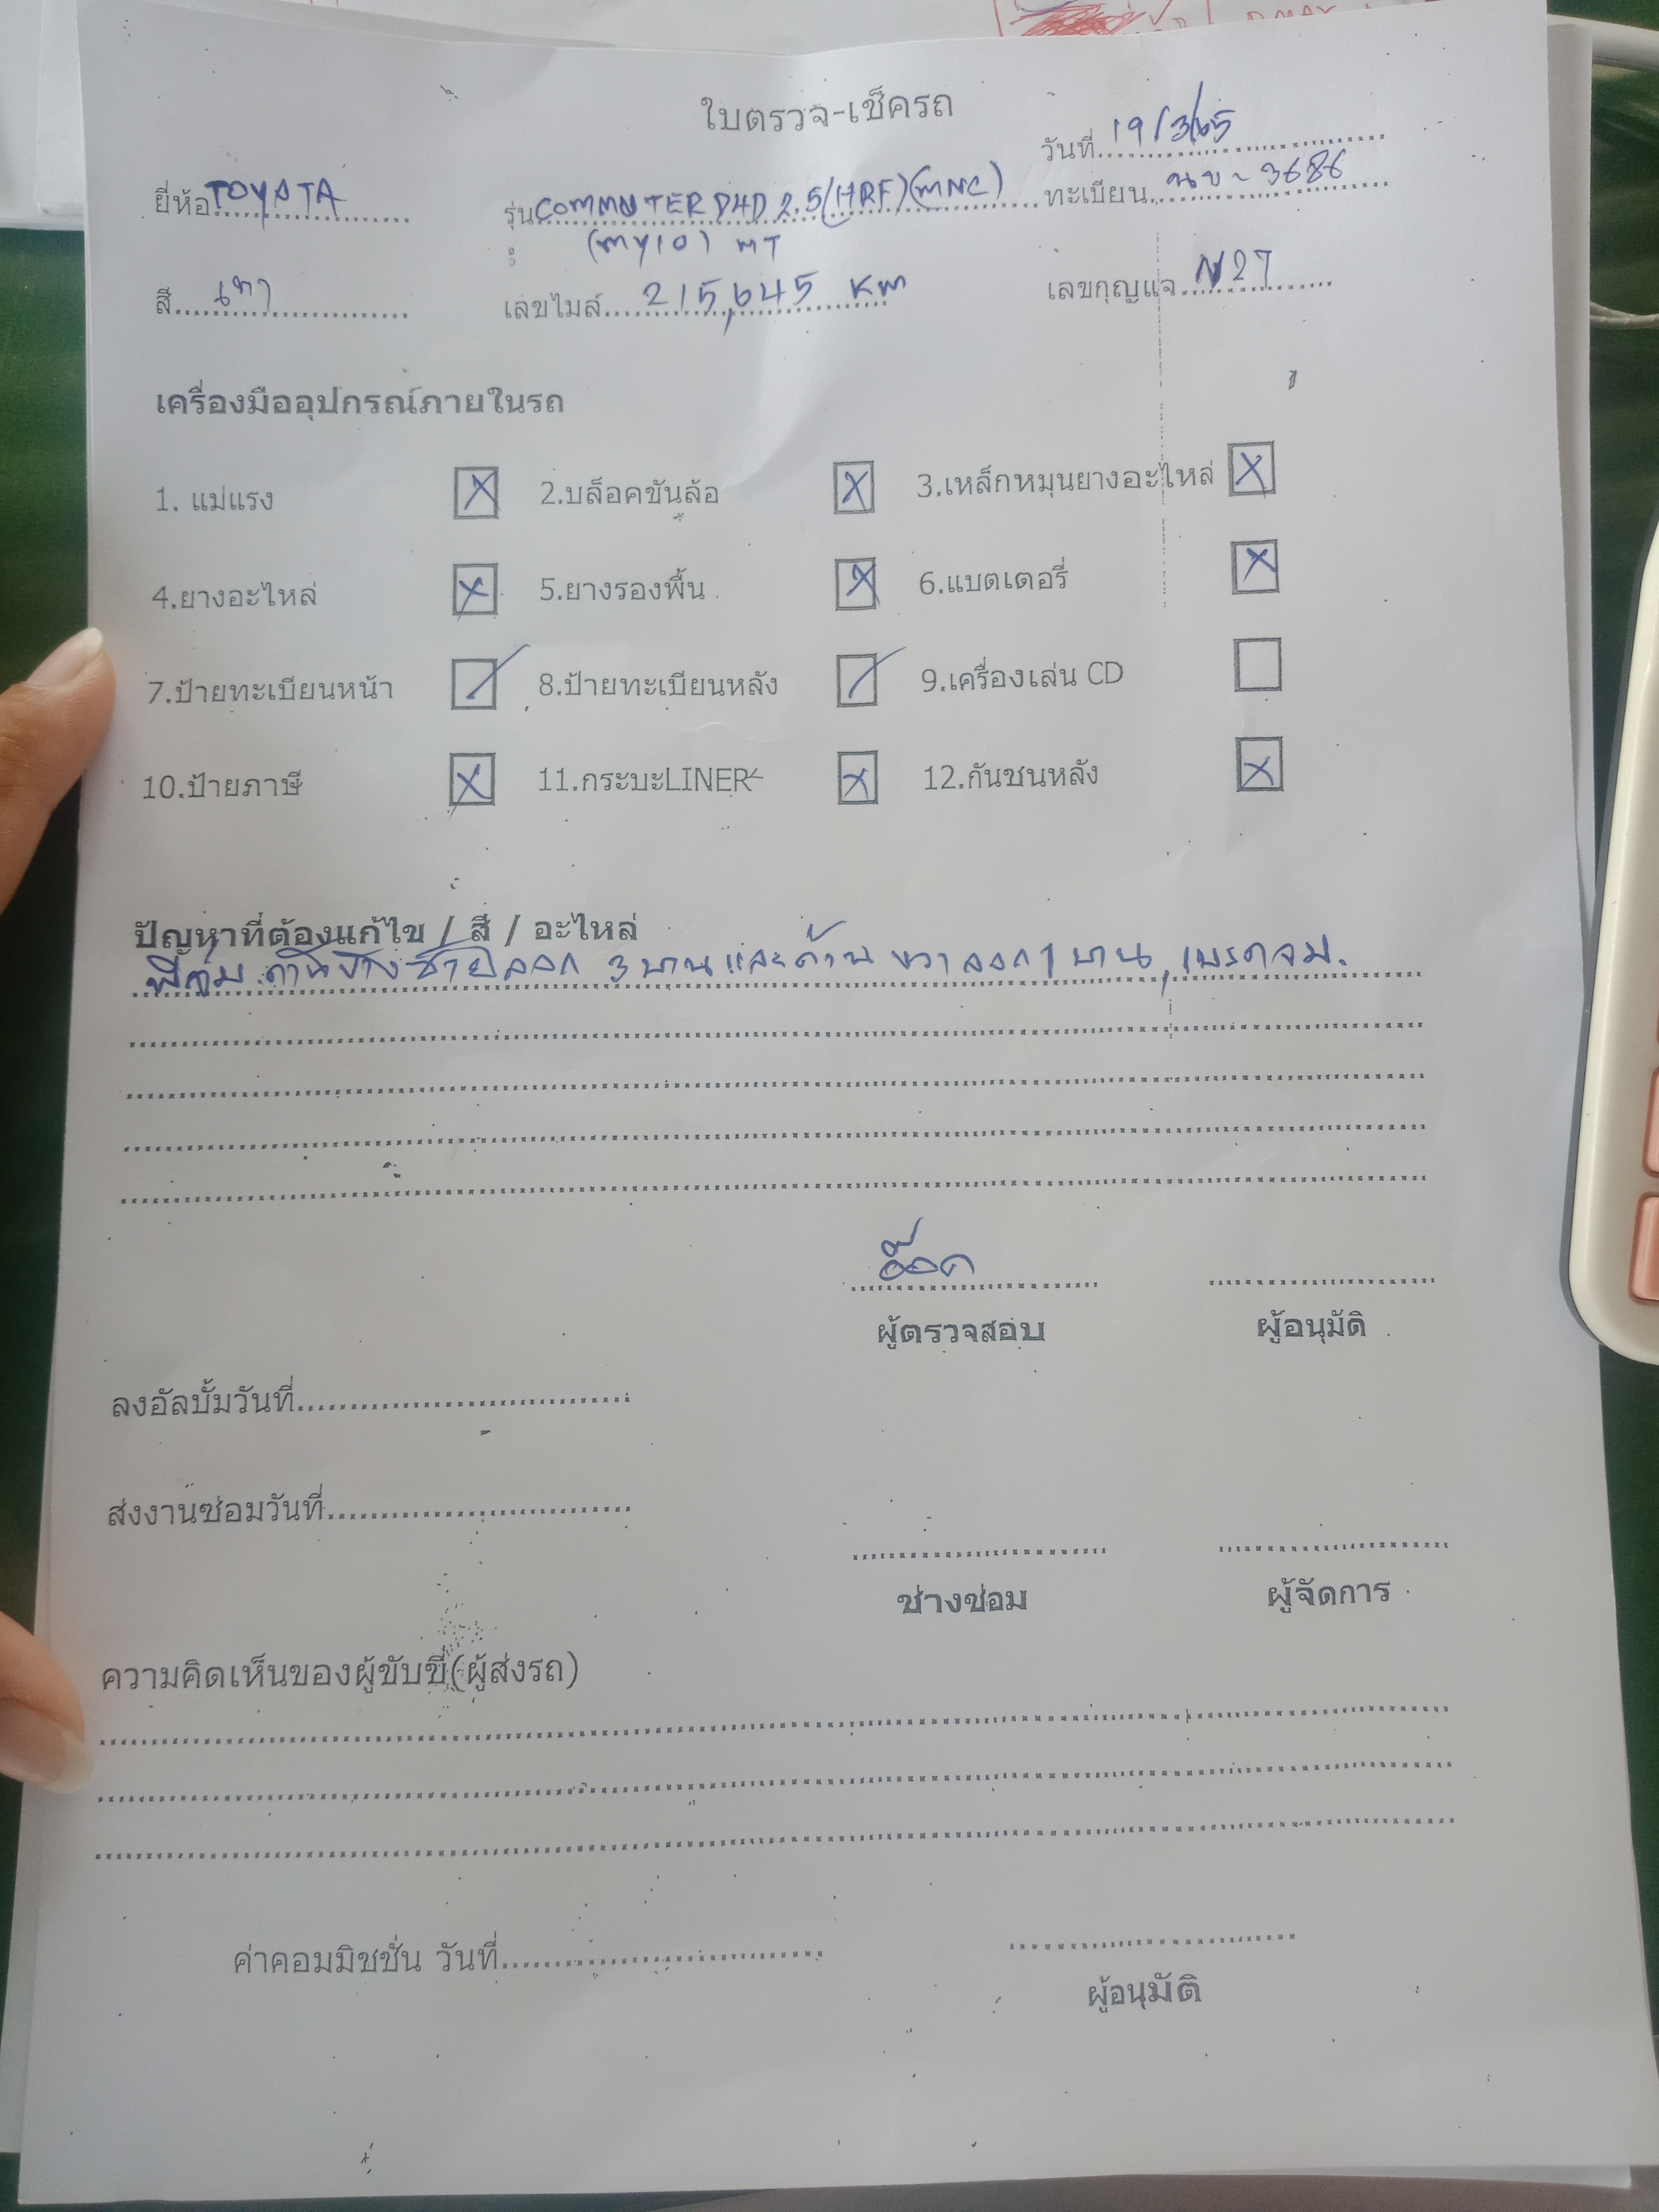 ใบตรวจ-เช็ครถ
วันที่ 19/3/65
ยี่ห้อ TOYOTA รุ่น COMMUTER D4D 2.5 (HRF)(MNC) ทะเบียน นข-3686
(MY10) MT
สี เทา เลขไมล์ 215,645 Km เลขกุญแจ N27
เครื่องมืออุปกรณ์ภายในรถ
1. แม่แรง X 2.บล็อคขันล้อ X 3.เหล็กหมุนยางอะไหล่ X
4.ยางอะไหล่ X 5.ยางรองพื้น X 6.แบตเตอรี่ X
7.ป้ายทะเบียนหน้า / 8.ป้ายทะเบียนหลัง / 9.เครื่องเล่น CD
10.ป้ายภาษี X 11.กระบะLINER X 12.กันชนหลัง X
ปัญหาที่ต้องแก้ไข / สี / อะไหล่
ด้านข้างซ้ายลอก 3 บานและด้านขวาลอก 1 บาน, เบรคจม.
อ๊อด
ผู้ตรวจสอบ ผู้อนุมัติ
ลงอัลบั้มวันที่
ส่งงานซ่อมวันที่
ช่างซ่อม ผู้จัดการ
ความคิดเห็นของผู้ขับขี่(ผู้ส่งรถ)
ค่าคอมมิชชั่น วันที่
ผู้อนุมัติ